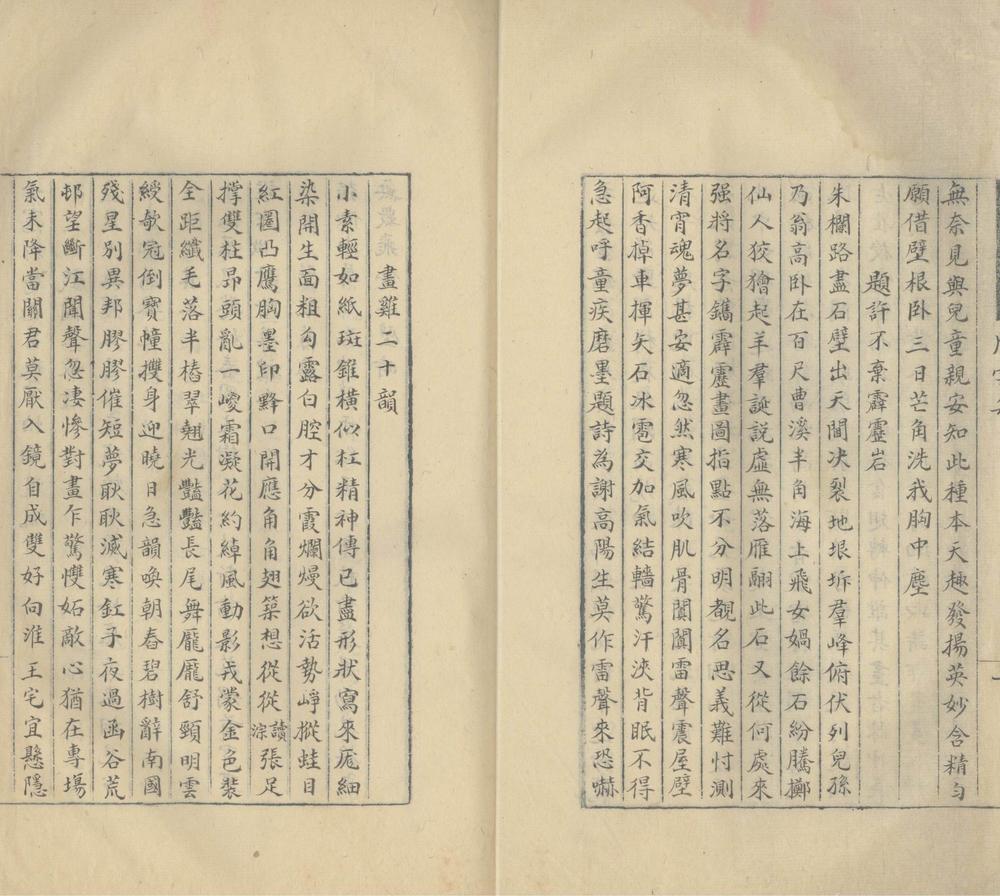 無奈見與兒童親安知此種本天趣發揚英妙含精勻
願借壁根卧三日芒角洗我胸中塵
題許不棄霹靂岩
朱欄路盡石壁出天闊决裂地垠坼羣峰俯伏列兒孫
乃翁高卧在百尺曹溪半角海上飛女媧餘石紛騰擲
仙人狡獪起羊羣誕説虚無落雁翮此石又從何處來
强將名字鐫霹靂畫圖指點不分明覩名思義難忖測
清宵魂夢甚安適忽然寒風吹肌骨闐闐雷聲震屋壁
阿香掉車揮矢石冰雹交加氣結轖驚汗浹背眠不得
急起呼童疾磨墨題詩為謝高陽生莫作雷聲來恐嚇
畫雞二十韻
小素輕如紙斑錐横似杠精神傳已盡形狀寫來厖細
染開生面粗勾露白腔才分霞爛熳欲活勢崢摐蛙目
紅圏凸鷹胸墨印䵝口開應角角翅築想從從讀淙張足
撑雙柱昂頭亂一㚇霜凝花約綽風動影戎蒙金色裝
全距纖毛落半樁翠翹光豔豔長尾舞龎龎舒頸明雲
綬欹冠倒寶幢㩳身迎曉日急韻喚朝舂碧樹辭南國
殘星别異邦膠膠催短夢耿耿滅寒釭子夜過函谷荒
邨望斷江聞聲忽凄慘對畫乍驚㦼妬敵心猶在專塲
氣未降當關君莫厭入鏡自成雙好向淮王宅宜懸隱